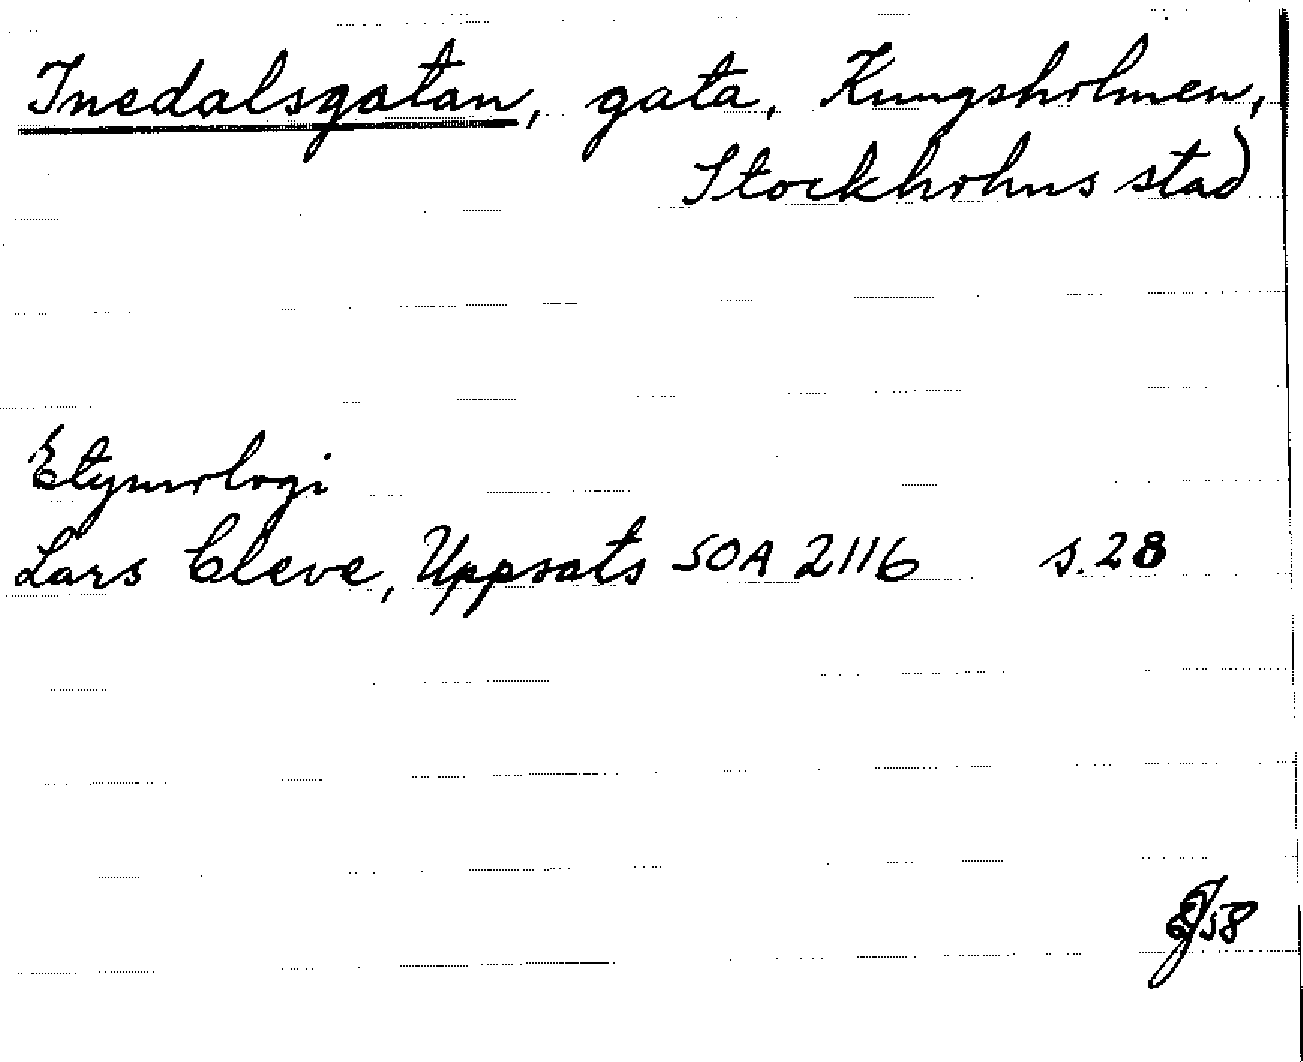 Inedalsgatan, gata, Kungsholmen,
Stockholms stad
Etymologi
Lars Cleve, Uppsats SOA 2116 s. 28
58